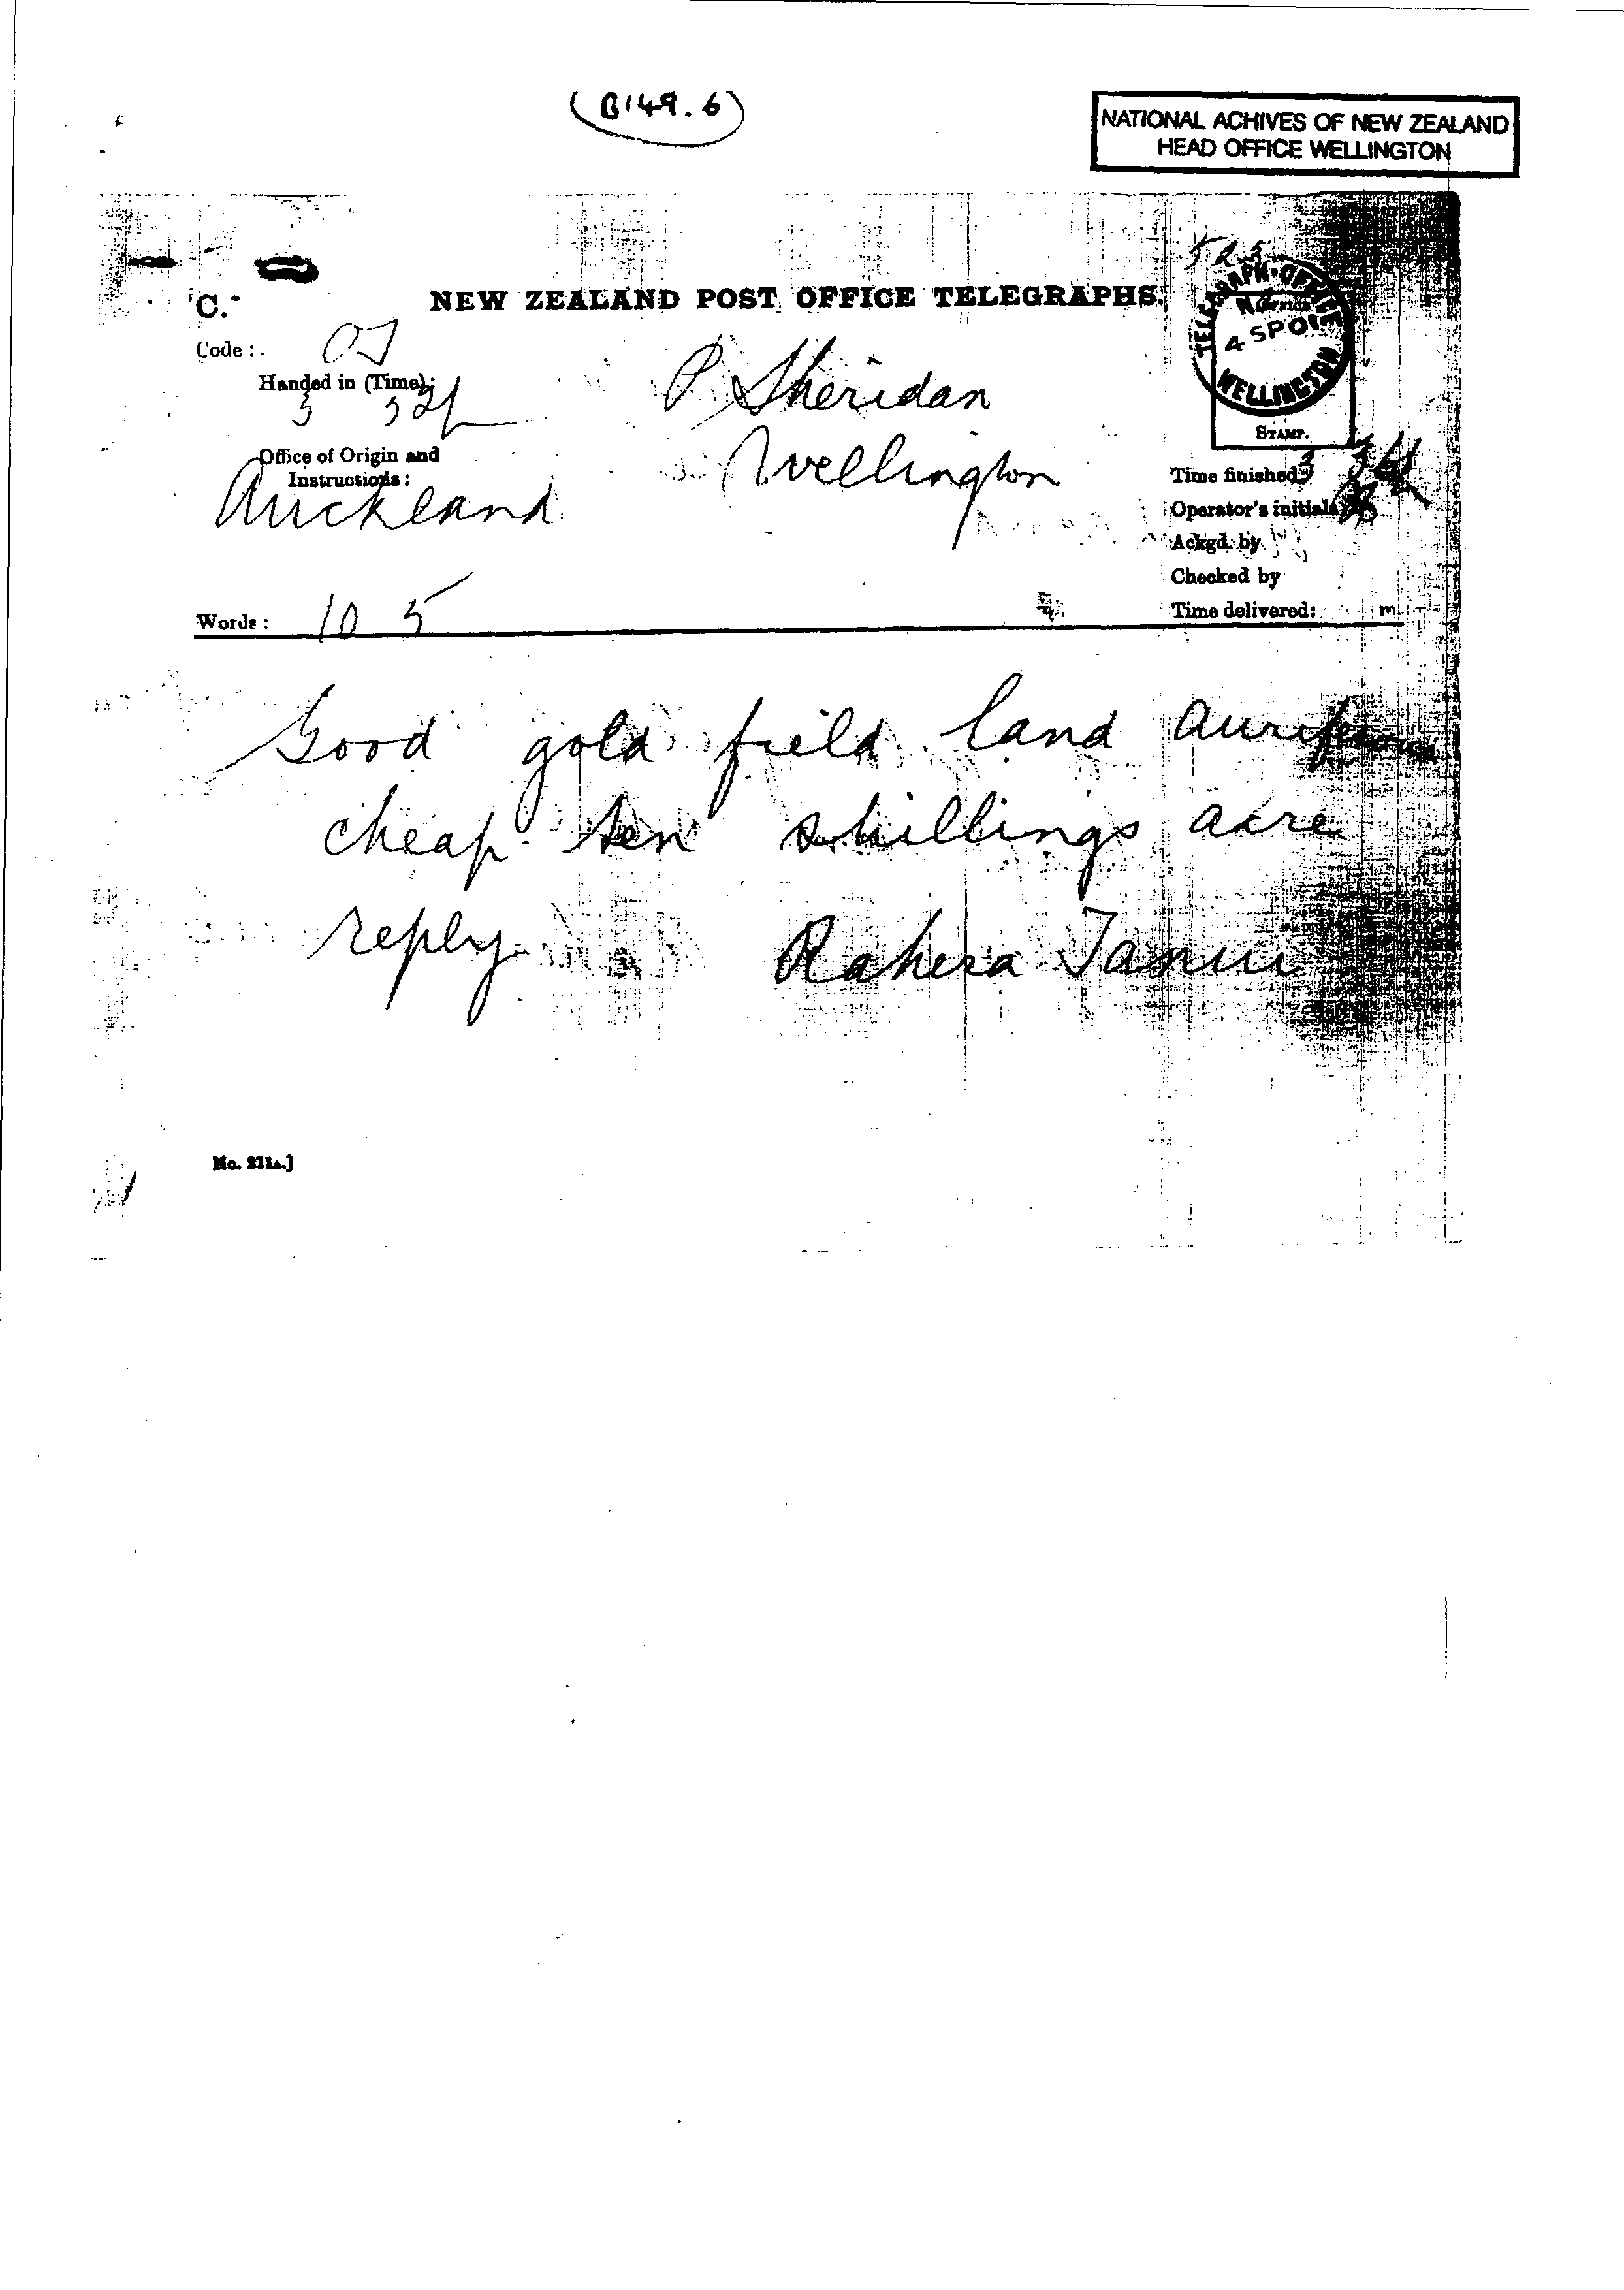 (B149.6)
NATIONAL ACHIVES OF NEW ZEALAND
HEAD OFFICE WELLINGTON
"C."
NEW ZEALAND POST OFFICE TELEGRAPHS.
TELEGRAPH·OFFICE
4 SP 01
WELLINGTON
STAMP.
Code :
Handed in (Time):
P. Sheridan
Office of Origin and
Instructions :
Auckland
Wellington
Time finished
Operator's initials
Ackgd. by
Checked by
Time delivered: m.
Words : 10 5
Good gold field land auriferous
cheap ten shillings acre
reply
Rahera Tanui
No. 211A.]